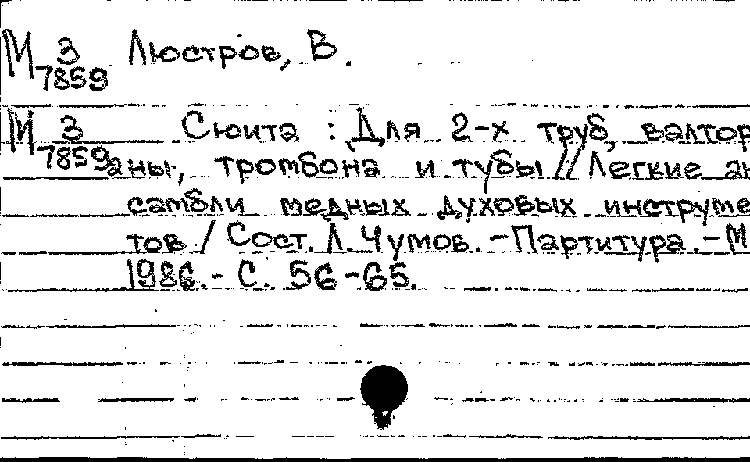 М 3 Люстров, В.
7859
М 3 Сюита : Для 2-х труб, валтор
7859 аны, тромбона и тубы // Легкие ан
самбли медных духовых инструме
тов / Сост. Л. Чумов. - Партитура. - М
1986. - С. 56-65.